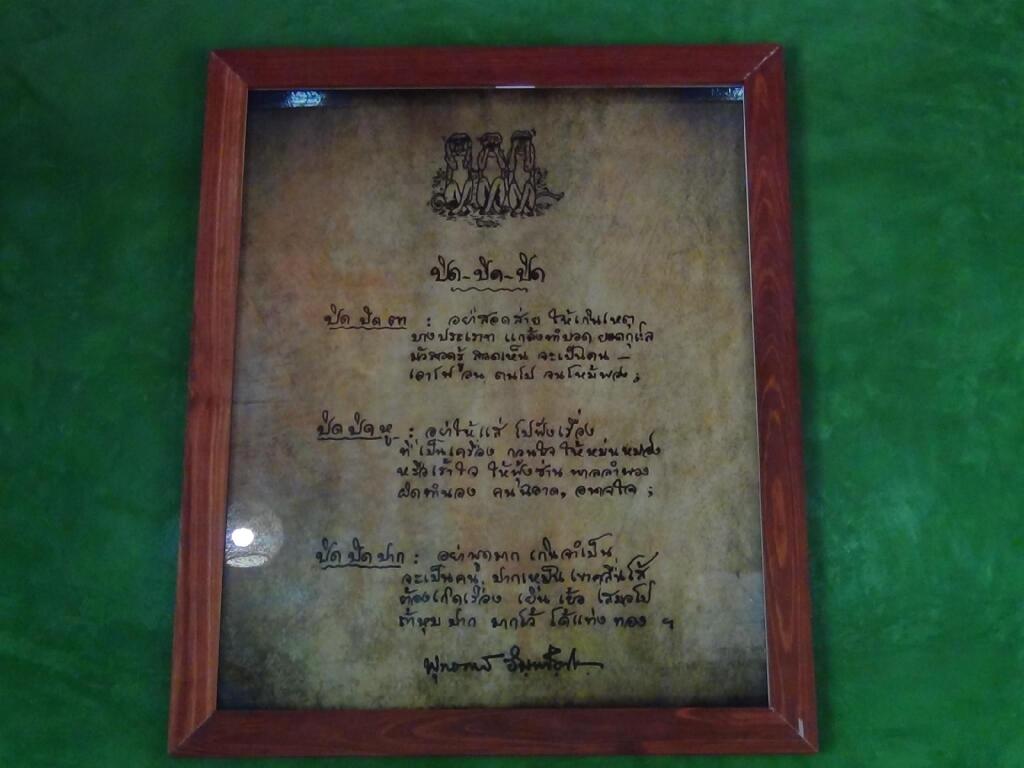 ปิด-ปิด-ปิด
ปิด ปิด ตา : อย่าสอดส่าย ให้เกินเหตุ
บางประเภท แกล้งทำบอด ยอดกุศล
มัวสอดรู้ สอดเห็น จะเป็นคน –
เอาไฟ ลน ตนไป จนไหม้พอง ;
ปิด ปิด หู : อย่าให้แส่ ไปฟังเรื่อง
ที่ เป็นเครื่อง กวนใจ ให้หม่นหมอง
หรือเร้าใจ ให้ฟุ้งซ่าน พาลลำพอง
ผิดทำนอง คนฉลาด, อนาถใจ ;
ปิด ปิด ปาก : อย่าพูดมาก เกินจำเป็น
จะเป็นคน ปากเหม็น เขาคลื่นไส้
ต้องเกิดเรื่อง เยิ่น เย้อ เสมอไป
ถ้าหุบ ปาก มากไว้ ได้แท่ง ทอง ฯ
พุทธทาส อินทปัญโญ